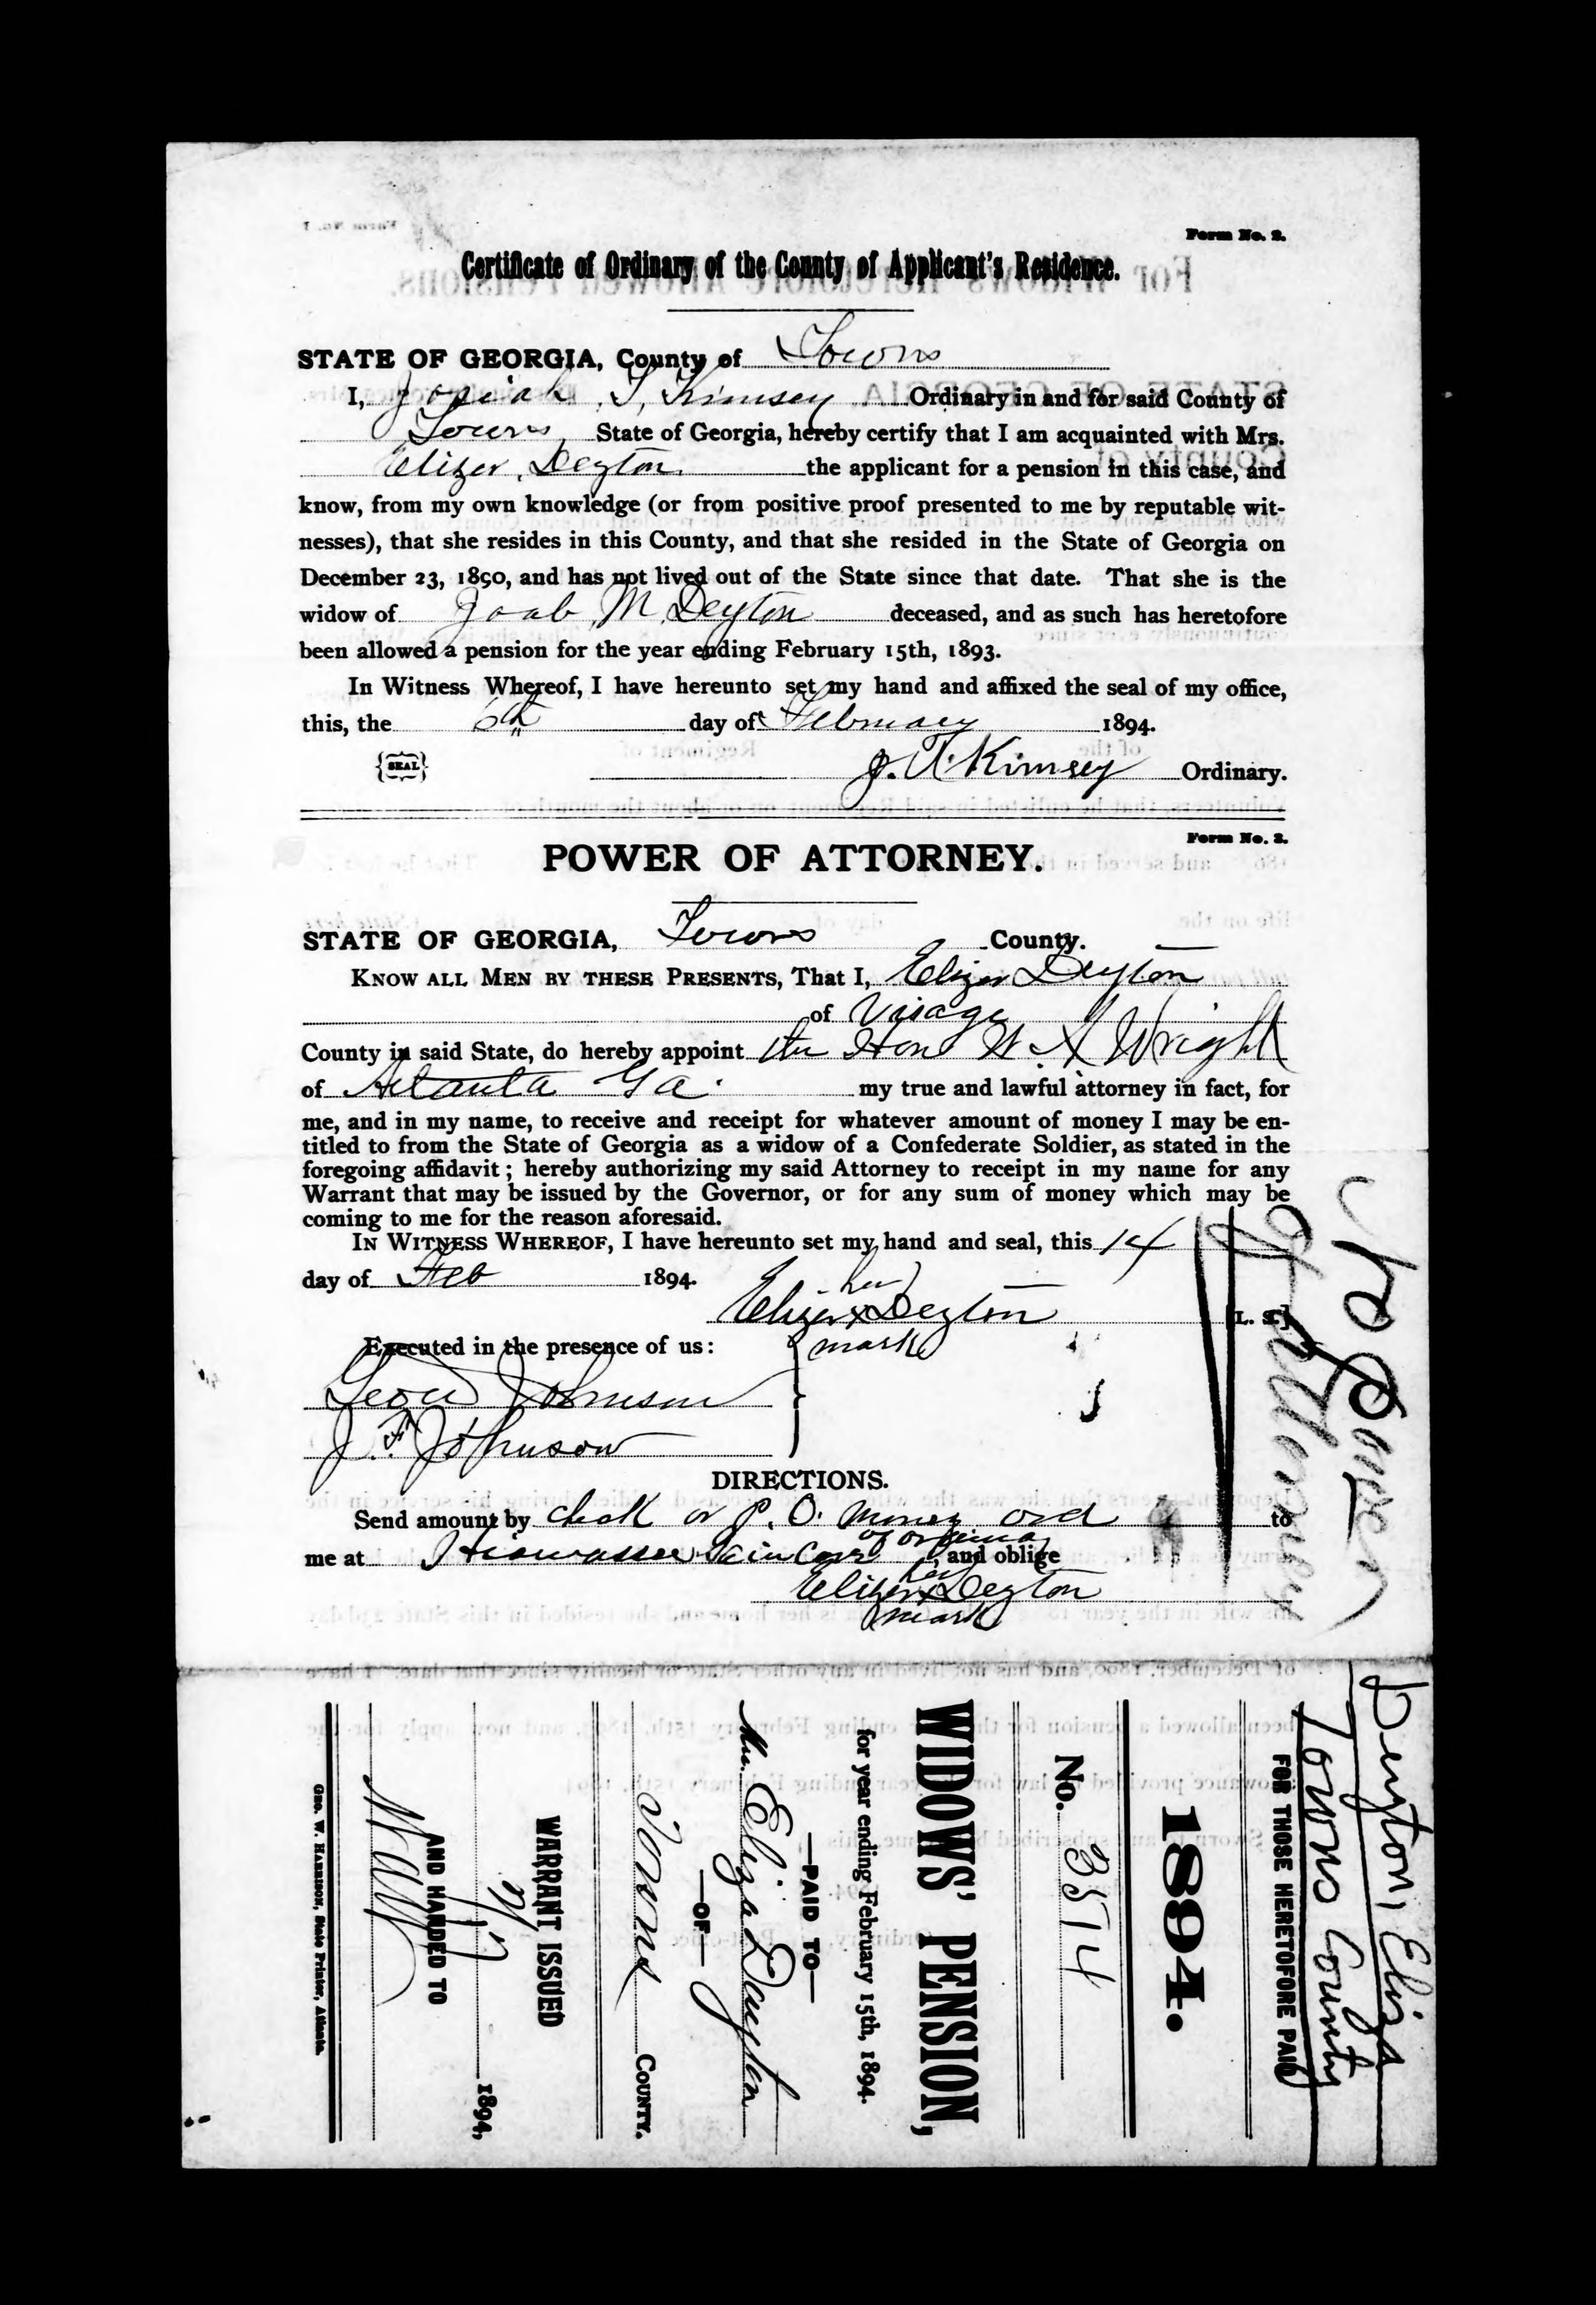 Form No. 2.
Certificate of Ordinary of the County of Applicant's Residence.
STATE OF GEORGIA, County of Towns
I, Josiah T, Kimsey Ordinary in and for said County of
Towns, State of Georgia, hereby certify that I am acquainted with Mrs.
Elizer, Deyton. the applicant for a pension in this case, and
know, from my own knowledge (or from positive proof presented to me by reputable wit-
nesses), that she resides in this County, and that she resided in the State of Georgia on
December 23, 1890, and has not lived out of the State since that date. That she is the
widow of Joab, M, Deyton deceased, and as such has heretofore
been allowed a pension for the year ending February 15th, 1893.
In Witness Whereof, I have hereunto set my hand and affixed the seal of my office,
this, the 6th day of February 1894.
{SEAL} J. T. Kimsey Ordinary.
Form No. 3.
POWER OF ATTORNEY.
STATE OF GEORGIA, Towns County.
KNOW ALL MEN BY THESE PRESENTS, That I, Elizer Deyton
of Visage
County in said State, do hereby appoint the Hon W. A Wright
of Atlanta Ga. my true and lawful attorney in fact, for
me, and in my name, to receive and receipt for whatever amount of money I may be en-
titled to from the State of Georgia as a widow of a Confederate Soldier, as stated in the
foregoing affidavit; hereby authorizing my said Attorney to receipt in my name for any
Warrant that may be issued by the Governor, or for any sum of money which may be
coming to me for the reason aforesaid.
IN WITNESS WHEREOF, I have hereunto set my hand and seal, this 14
day of Feb 1894.
her
Elizer x Deyton [L. S.]
mark
Executed in the presence of us:
Johnson
J. F. Johnson
DIRECTIONS.
Send amount by check or P. O. money ord to
me at Hiawassee in care of ordinary, and oblige
her
Elizer x Deyton
mark
Power
Attorney
Deyton, Eliza
Towns County
FOR THOSE HERETOFORE PAID
1894.
No. 3514
WIDOWS' PENSION,
for year ending February 15th, 1894.
—PAID TO—
Mrs. Eliza Deyton
—OF—
Towns COUNTY.
WARRANT ISSUED
1894,
AND HANDED TO
GEO. W. HARRISON, State Printer, Atlanta.